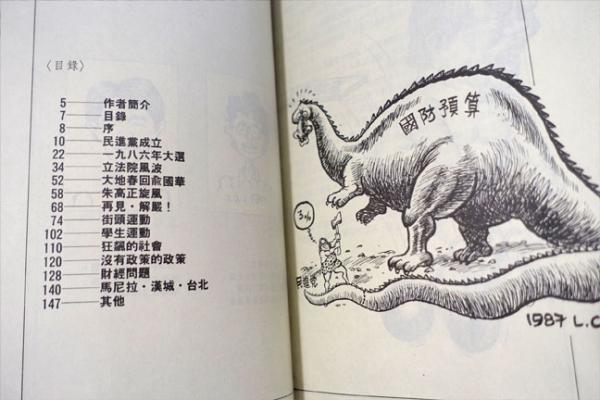 〈目錄〉
5——作者簡介
7——目錄
8——序
10——民進黨成立
22——一九八六年大選
34——立法院風波
52——大地春回俞國華
58——朱高正旋風
68——再見·解嚴！
74——街頭運動
102——學生運動
110——狂飆的社會
120——沒有政策的政策
128——財經問題
140——馬尼拉·漢城·台北
147——其他
國防預算
3%
民進党
1987 L.C